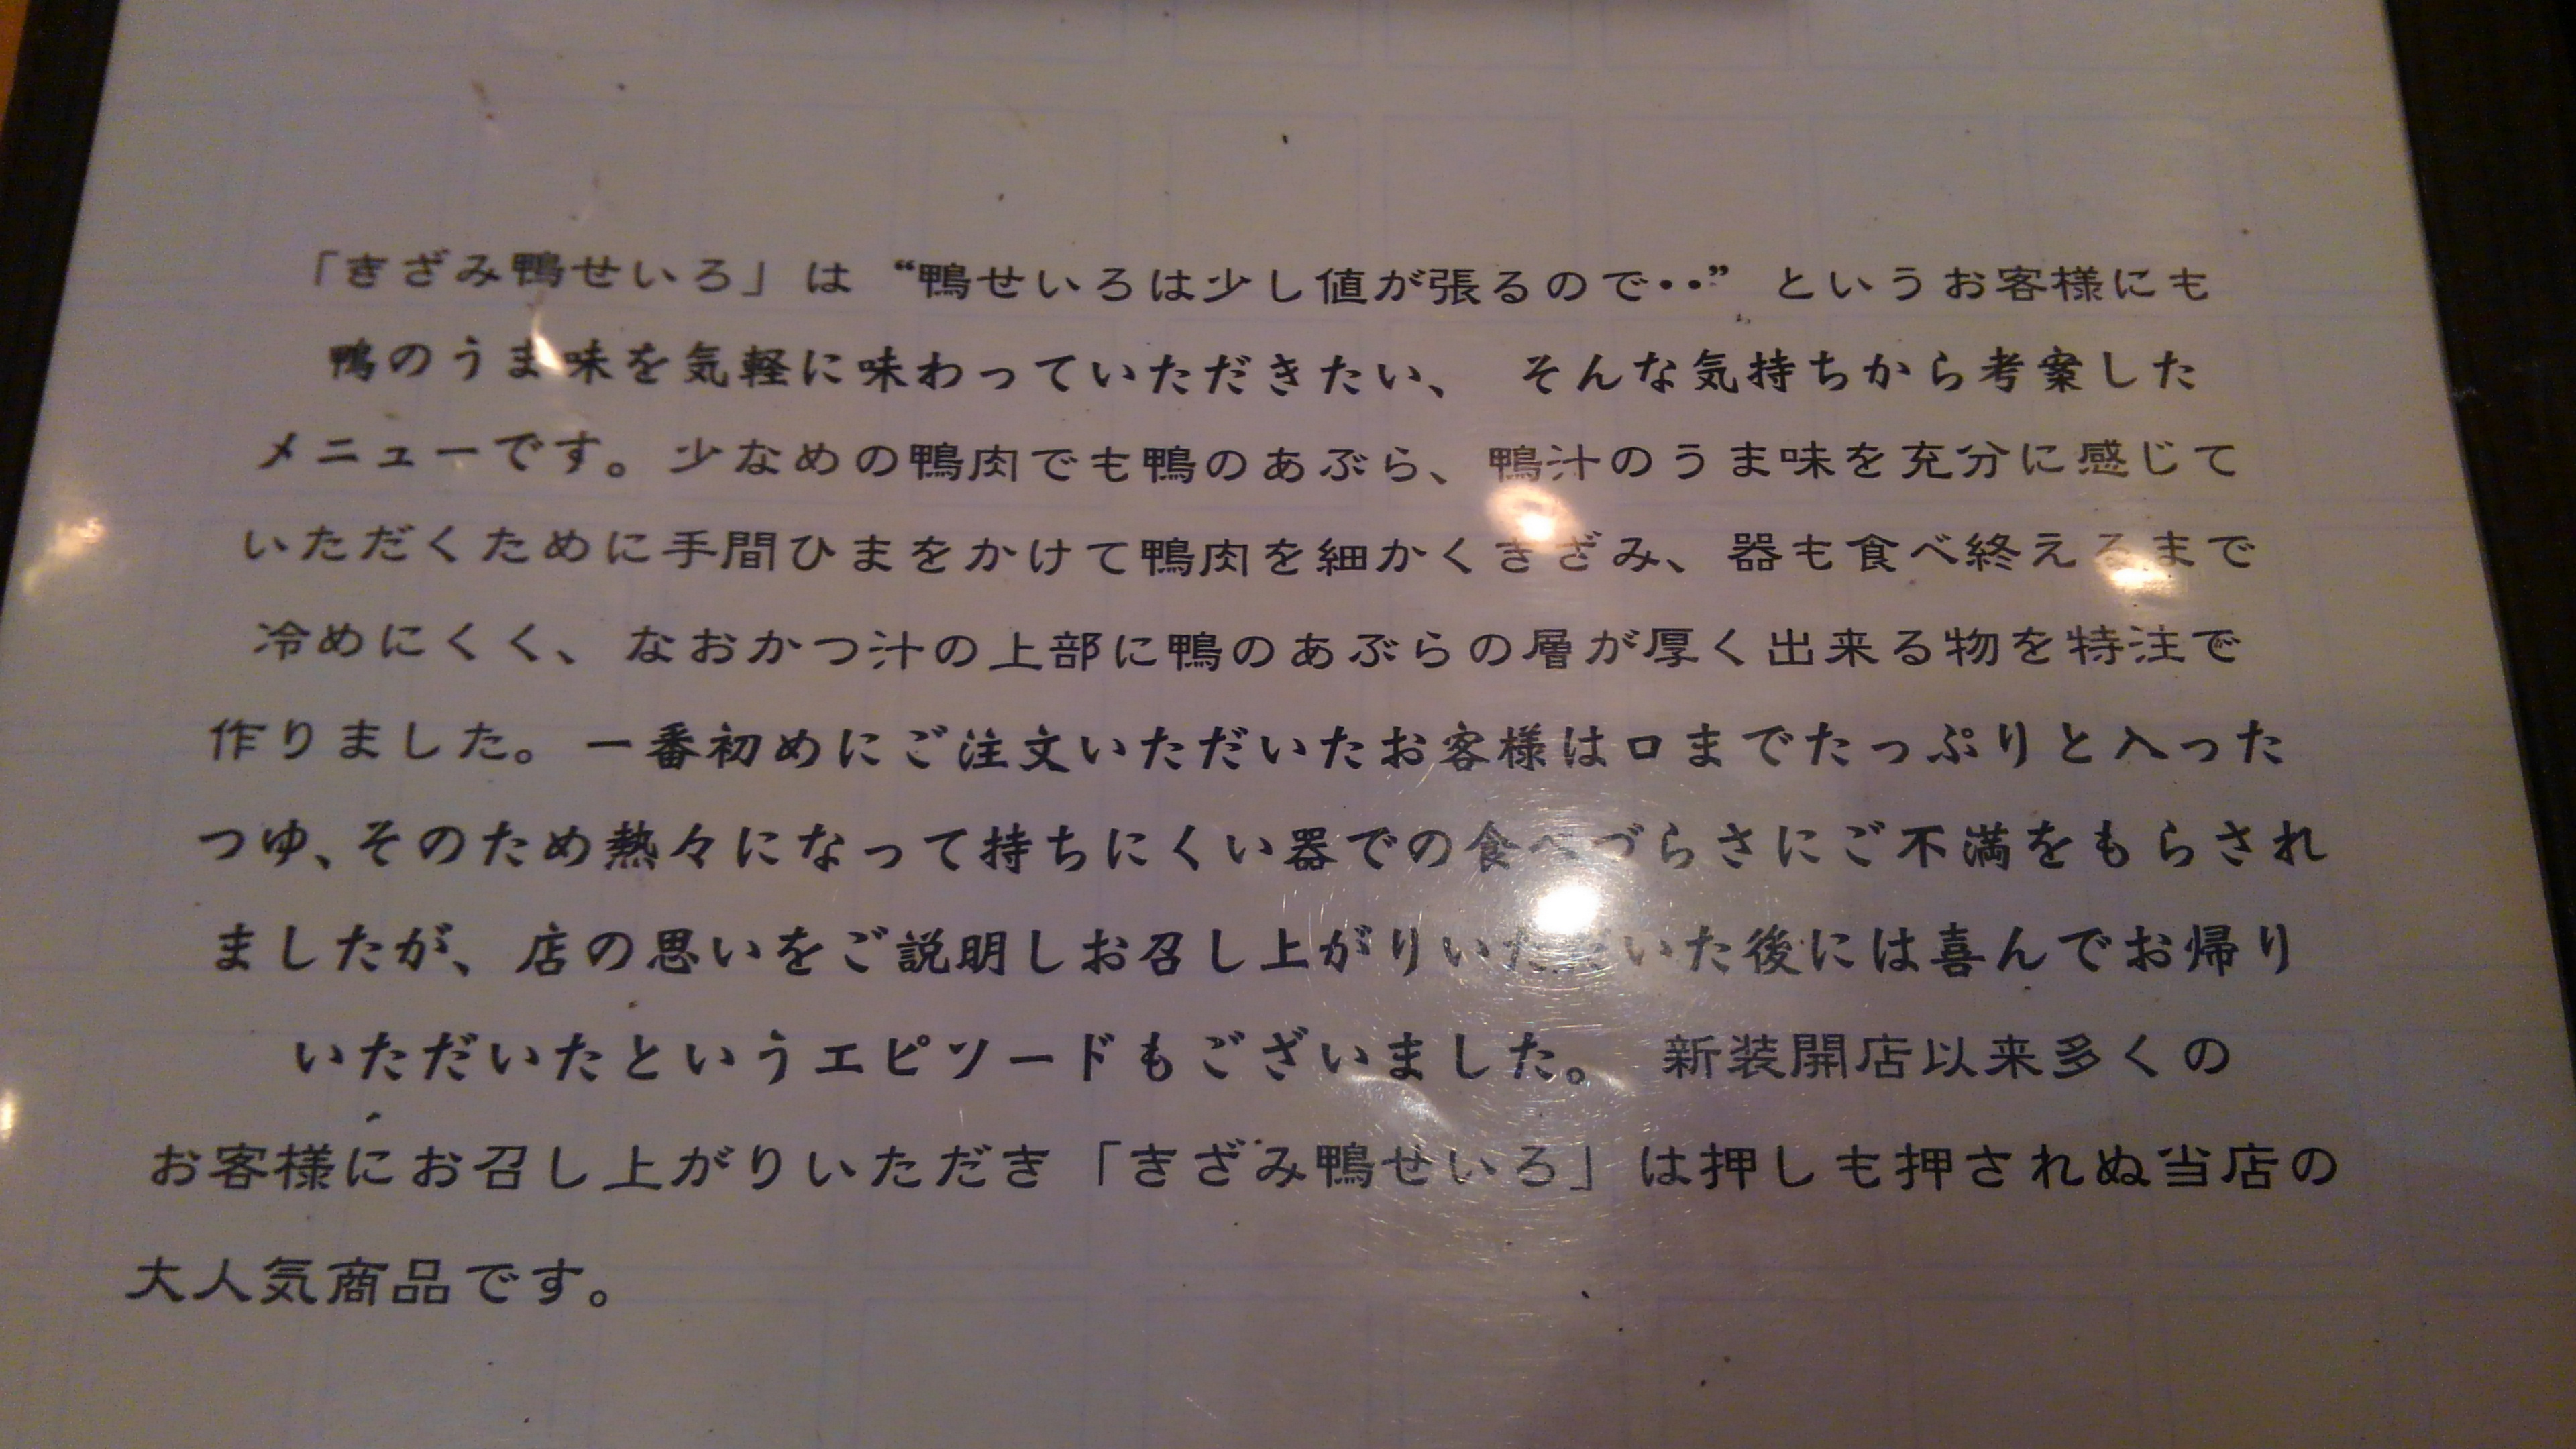 「きざみ鴨せいろ」は“鴨せいろは少し値が張るので・・”というお客様にも
鴨のうま味を気軽に味わっていただきたい、 そんな気持ちから考案した
メニューです。少なめの鴨肉でも鴨のあぶら、鴨汁のうま味を充分に感じて
いただくために手間ひまをかけて鴨肉を細かくきざみ、器も食べ終えるまで
冷めにくく、なおかつ汁の上部に鴨のあぶらの層が厚く出来る物を特注で
作りました。一番初めにご注文いただいたお客様は口までたっぷりと入った
つゆ、そのため熱々になって持ちにくい器での食べづらさにご不満をもらされ
ましたが、店の思いをご説明しお召し上がりいただいた後には喜んでお帰り
いただいたというエピソードもございました。 新装開店以来多くの
お客様にお召し上がりいただき「きざみ鴨せいろ」は押しも押されぬ当店の
大人気商品です。